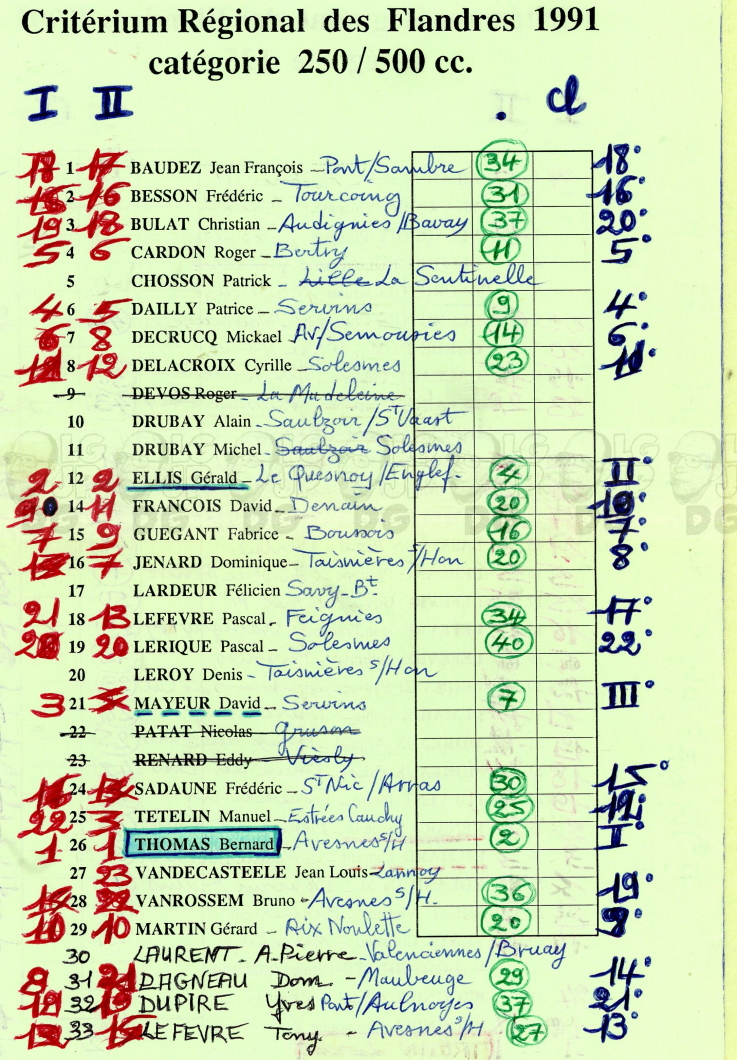 Critérium Régional des Flandres 1991
catégorie 250 / 500 cc.
I II . cl
1 17 BAUDEZ Jean François - Pont/Sambre 34 18°
2 16 BESSON Frédéric - Tourcoing 31 16°
19 3 18 BULAT Christian - Audignies/Bavay 37 20°
5 4 6 CARDON Roger - Bertry 11 5°
5 CHOSSON Patrick - Lille La Sentinelle
4 6 5 DAILLY Patrice - Servins 9 4°
6 7 8 DECRUCQ Mickael Av/Semousies 14 6°
8 12 DELACROIX Cyrille - Solesmes 23 11°
9 DEVOS Roger - La Madeleine
10 DRUBAY Alain - Saulzoir/St Vaast
11 DRUBAY Michel - Saulzoir Solesmes
2 12 2 ELLIS Gérald - Le Quesnoy/Englef. 4 II°
14 11 FRANCOIS David - Denain 20 10°
7 15 9 GUEGANT Fabrice - Boussois 16 7°
16 7 JENARD Dominique - Taisnières s/Hon 20 8°
17 LARDEUR Félicien Savy-Bt.
21 18 13 LEFEVRE Pascal - Feignies 34 17°
19 20 LERIQUE Pascal - Solesmes 40 22°
20 LEROY Denis - Taisnières s/Hon
3 21 MAYEUR David - Servins 7 III°
22 PATAT Nicolas - Gruson
23 RENARD Eddy - Viesly
24 SADAUNE Frédéric - St Nic/Arras 30 15°
22 25 3 TETELIN Manuel - Estrées Cauchy 25 12°
1 26 1 THOMAS Bernard - Avesnes s/H 2 I°
27 23 VANDECASTEELE Jean Louis - Lannoy
28 22 VANROSSEM Bruno - Avesnes s/H. 36 19°
10 29 10 MARTIN Gérard - Aix Noulette 20 9°
30 LAURENT A.Pierre - Valenciennes/Bruay
31 DAGNEAU Dom. - Maubeuge 29 14°
32 DUPIRE Yves Pont/Aulnoyes 37 21°
33 LEFEVRE Tony. - Avesnes s/H 27 13°